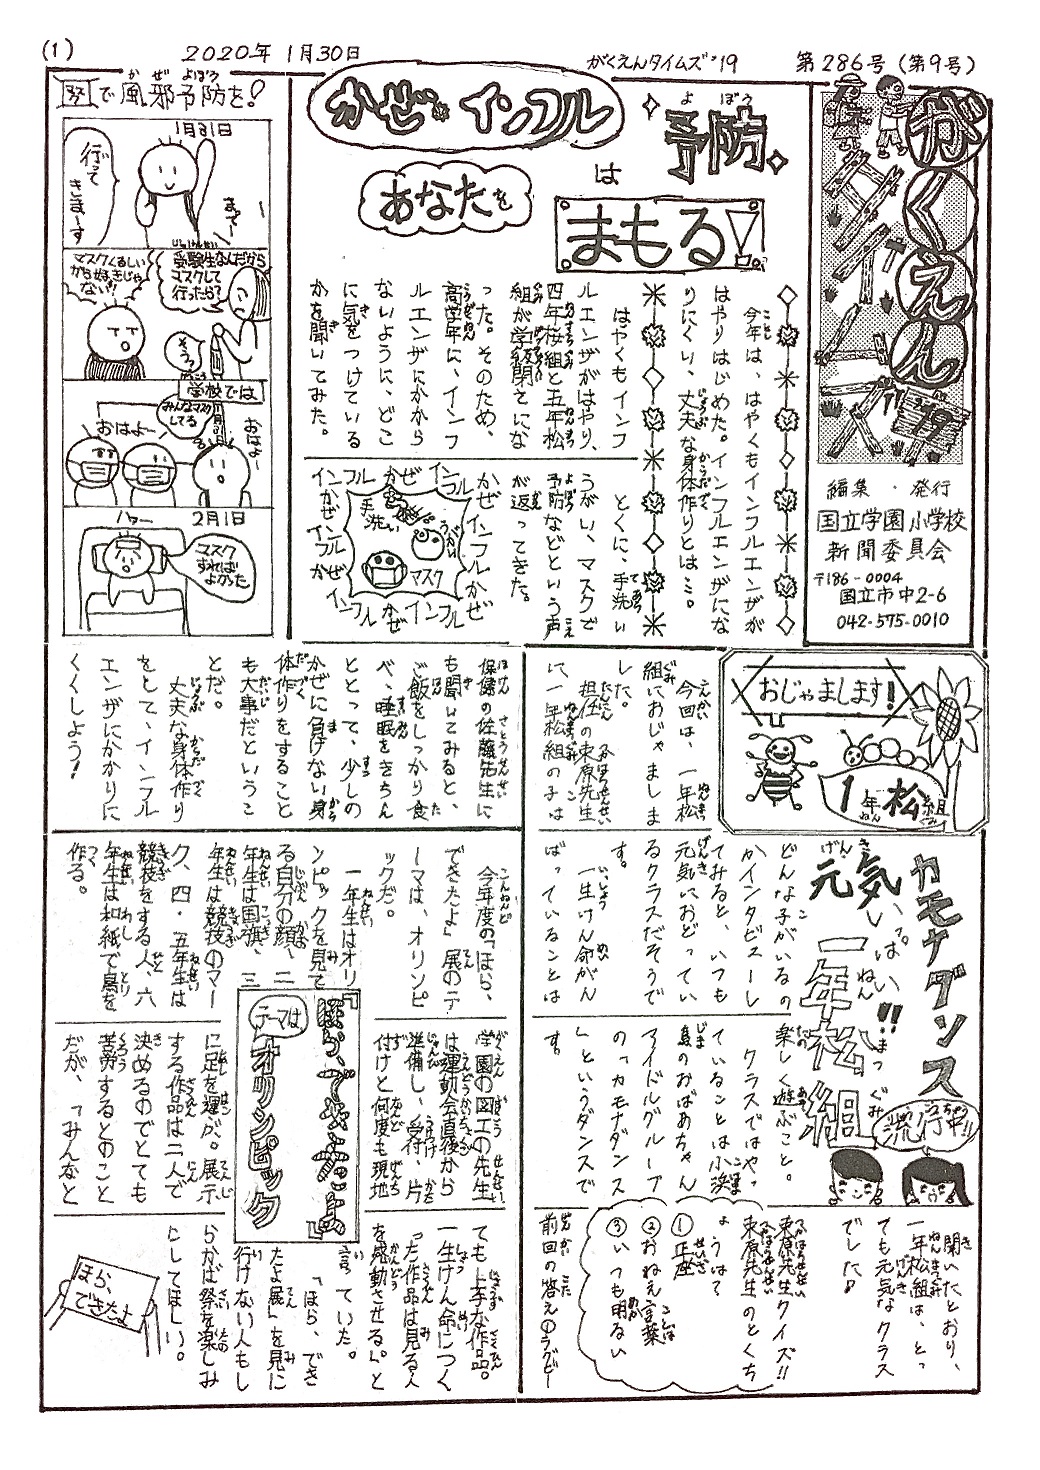 (1)
2020年1月30日
がくえんタイムズ'19
第286号(第9号)
がくえんタイムズ'19
編集・発行
国立学園小学校
新聞委員会
〒186-0004
国立市中2-6
042-575-0010
かぜ・インフル
予防
は
あなたを
まもる!
今年は、はやくもインフルエンザが
はやりはじめた。インフルエンザにな
りにくい、丈夫な身体作りとは…。
はやくもインフ
ルエンザがはやり、
四年桜組と五年松
組が学級閉さにな
った。そのため、
高学年に、インフ
ルエンザにかから
ないように、どこ
に気をつけている
かを聞いてみた。
とくに、手洗い
うがい、マスクで
予防などという声
が返ってきた。
かぜ インフル かぜ
インフル かぜ インフル
手洗い
うがい
マスク
保健の佐藤先生に
も聞いてみると、
ご飯をしっかり食
べ、睡眠をきちん
ととって、少しの
かぜに負けない身
体作りをすること
も大事だというこ
とだ。
丈夫な身体作り
をして、インフル
エンザにかかりに
くくしよう!
で風邪予防を!
1月31日
行って
きまーす
まてー
受験生なんだから
マスクして
行ったら?
マスクくるしい
から好きじゃ
ない!!
そう?
学校では
おはよー
みんなマスク
してる
おはよー
2月1日
ハァー
マスク
すれば
よかった
おじゃまします!
1年松組
カモナダンス
流行中!!
元気いっぱい!!
一年松組
今回は、一年松
組におじゃましま
した。
担任の束原先生
に、一年松組の子は
どんな子がいるの
かインタビューし
てみると、いつも
元気におどってい
るクラスだそうで
す。
一生けん命がん
ばっていることは
楽しく遊ぶこと。
クラスではやっ
ていることは小浜
島のおばあちゃん
アイドルグループ
の「カモナダンス
」というダンスで
す。
聞いたとおり、
一年松組は、とっ
ても元気なクラス
でした!
束原先生クイズ!!
束原先生のとくち
ょうは?
①正座
②おねえ言葉
③いつも明るい
前回の答え①ラグビー
『ほら、できたよ』
テーマは
オリンピック
今年度の「ほら、
できたよ」展のテ
ーマは、オリンピ
ックだ。
一年生はオリ
ンピックを見て
る自分の顔、二
年生は国旗、三
年生は競技のマー
ク、四・五年生は
競技をする人、六
年生は和紙で鳥を
作る。
学園の図工の先生
は運動会直後から
準備し、受付、片
付けと何度も現地
に足を運ぶ。展示
する作品は二人で
決めるのでとても
苦労するとのこと
だが、「みんなと
ても上手な作品。
一生けん命につく
った作品は見る人
を感動させる。」と
言っていた。
「ほら、でき
たよ展」を見に
行けない人もし
らかば祭を楽しみ
にしてほしい。
ほら、
できたよ